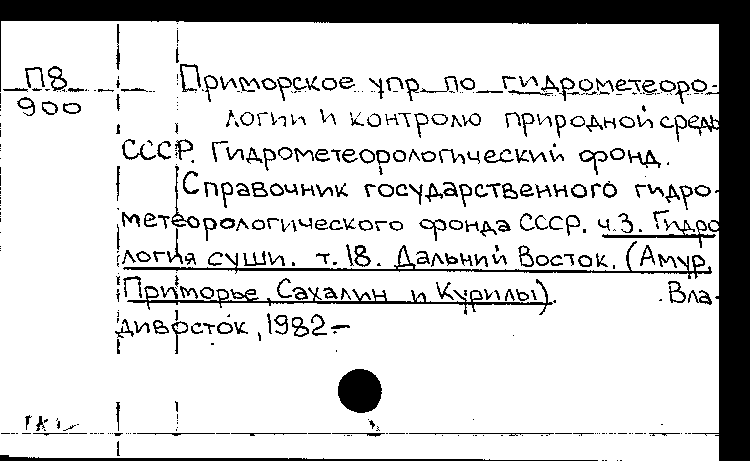 П8
900
Приморское упр. по гидрометеоро-
логии и контролю природной среды
СССР. Гидрометеорологический фонд.
Справочник государственного гидро-
метеорологического фонда СССР. ч.3. Гидро
логия суши. т.18. Дальний Восток. (Амур,
Приморье, Сахалин и Курилы). Вла-
дивосток, 1982-